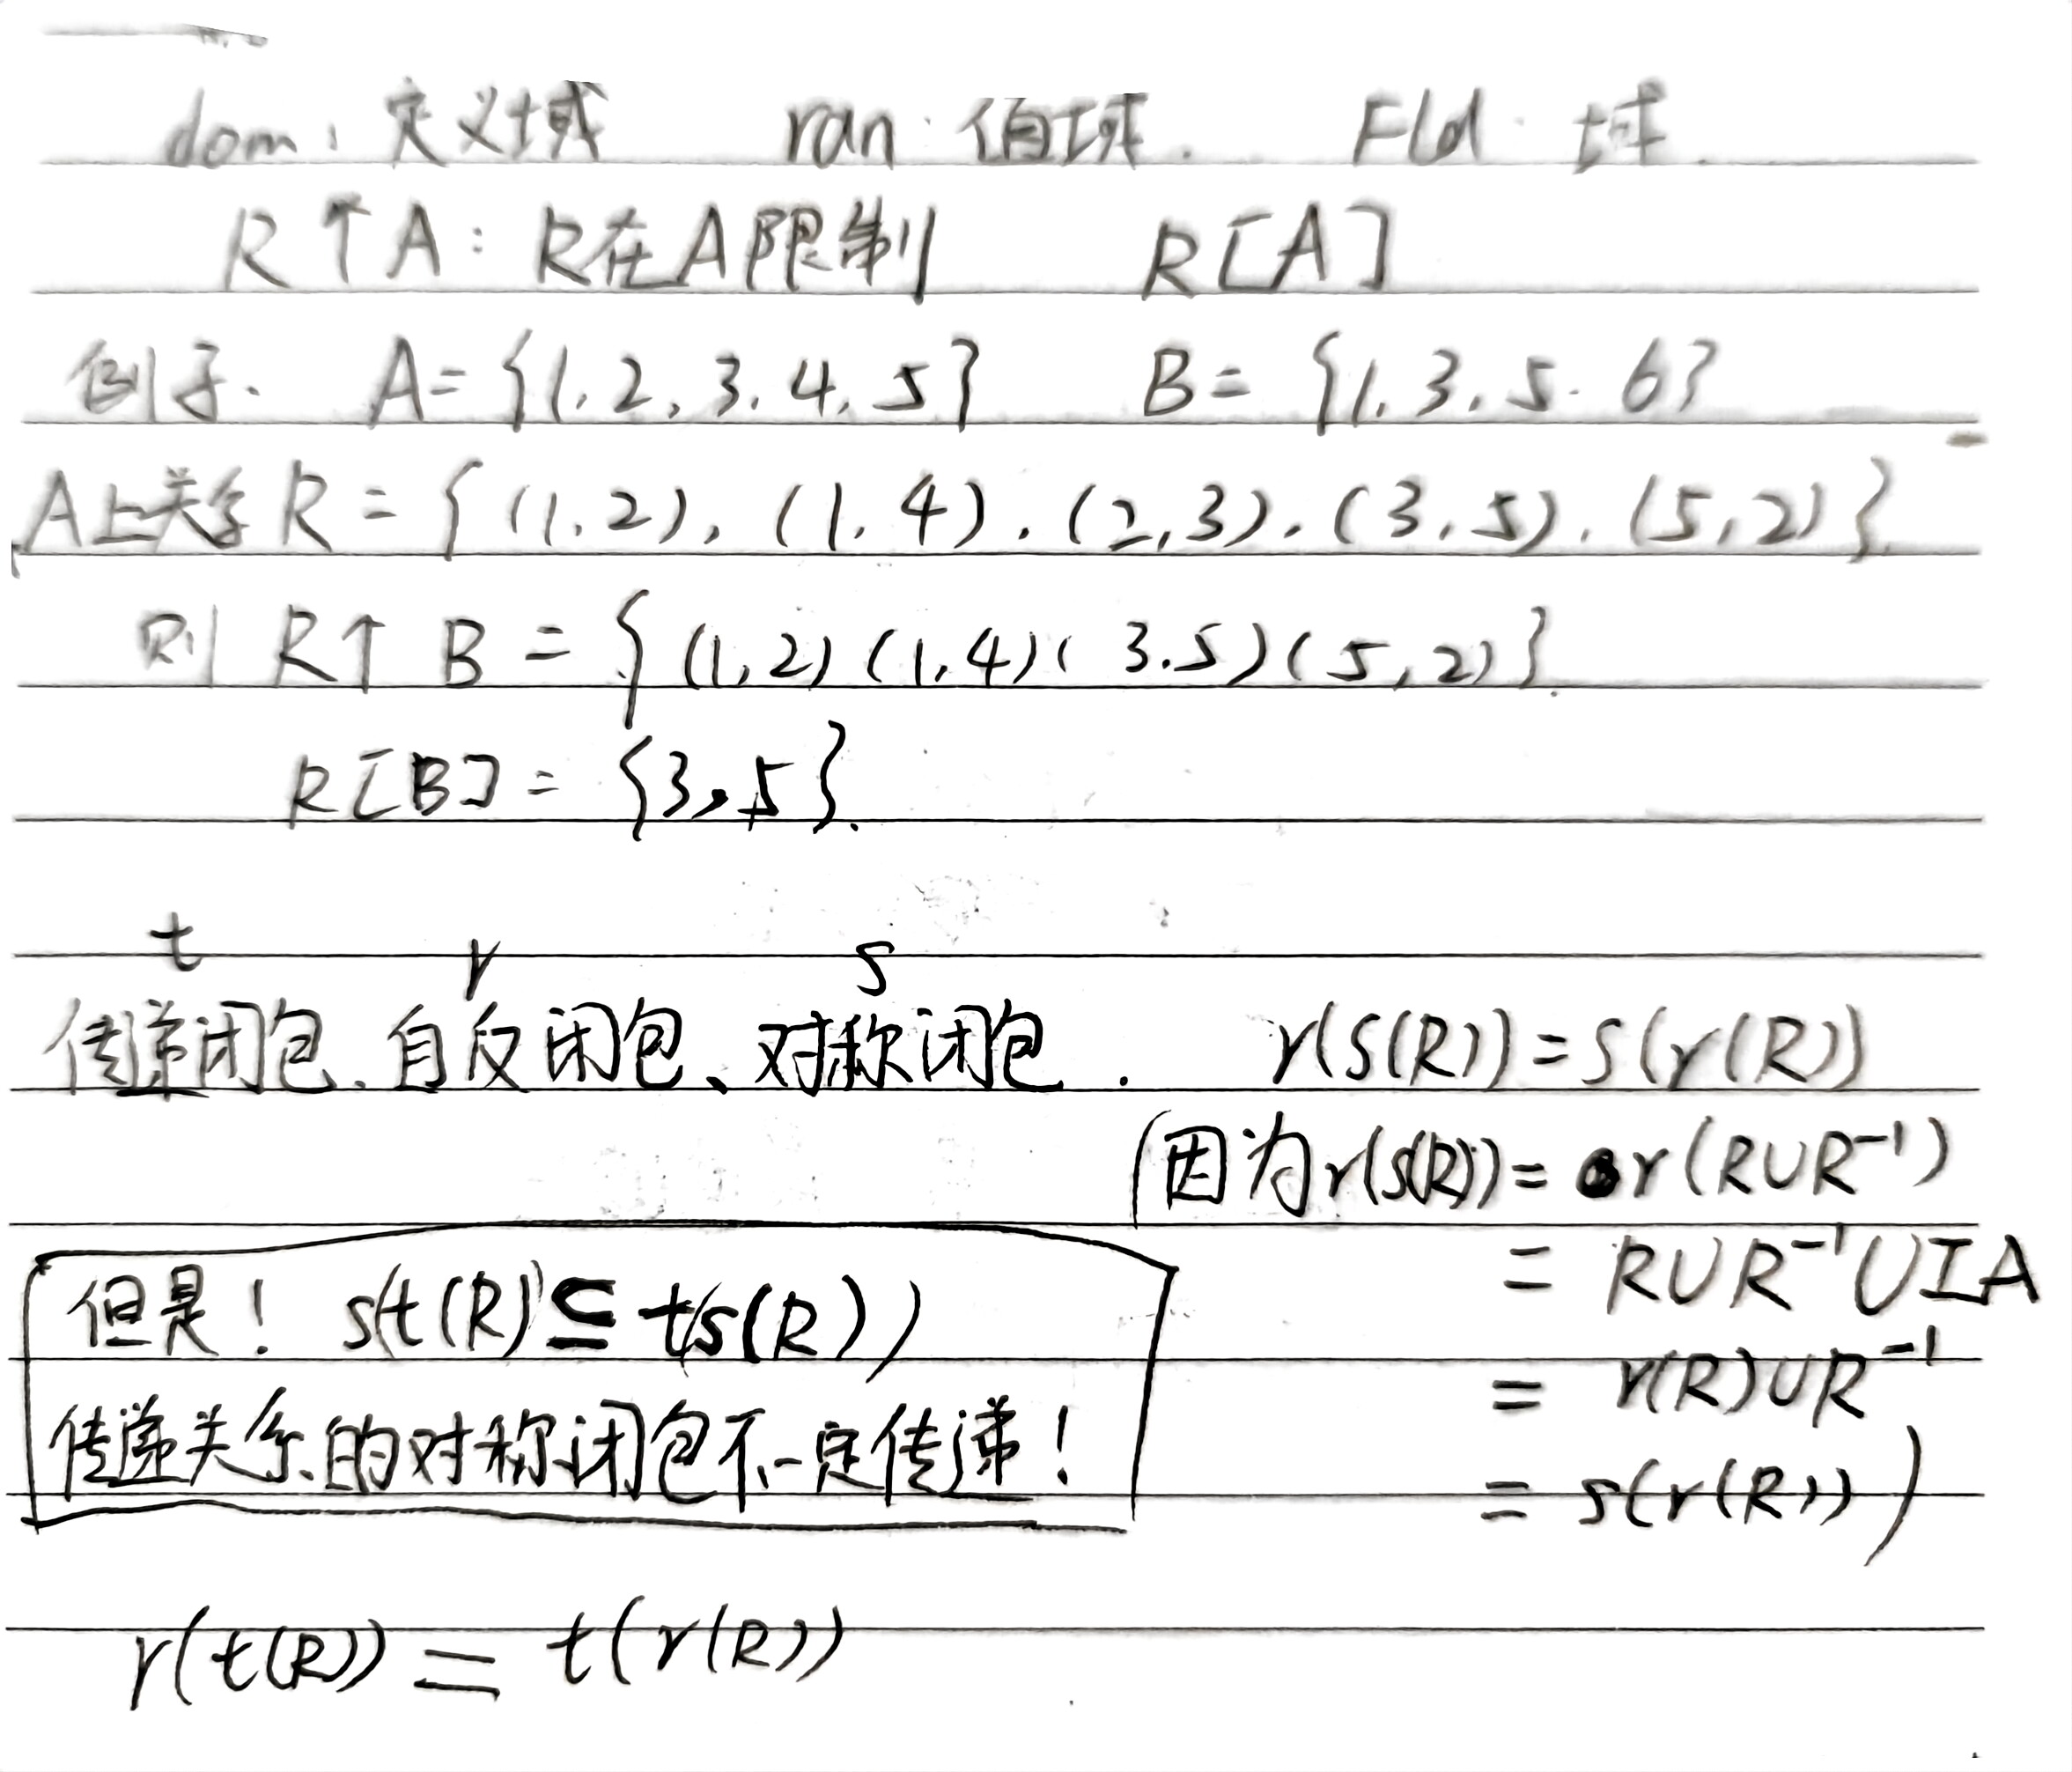 dom: 定义域 ran: 值域. Fld: 域.
R↑A: R在A限制 R[A]
例子. A={1.2,3.4,5} B={1.3.5.6}
A上关系R={(1.2),(1.4).(2,3).(3.5).(5,2)}.
则 R↑B={(1,2)(1,4)(3.5)(5,2)}.
R[B]={3,5}.
t r s
传递闭包、自反闭包、对称闭包. r(s(R))=s(r(R))
(因为r(s(R))= r(R∪R⁻¹)
= R∪R⁻¹∪IA
= r(R)∪R⁻¹
= s(r(R)))
但是! s(t(R)⊆t(s(R))
传递关系的对称闭包不一定传递!
r(t(R))=t(r(R))